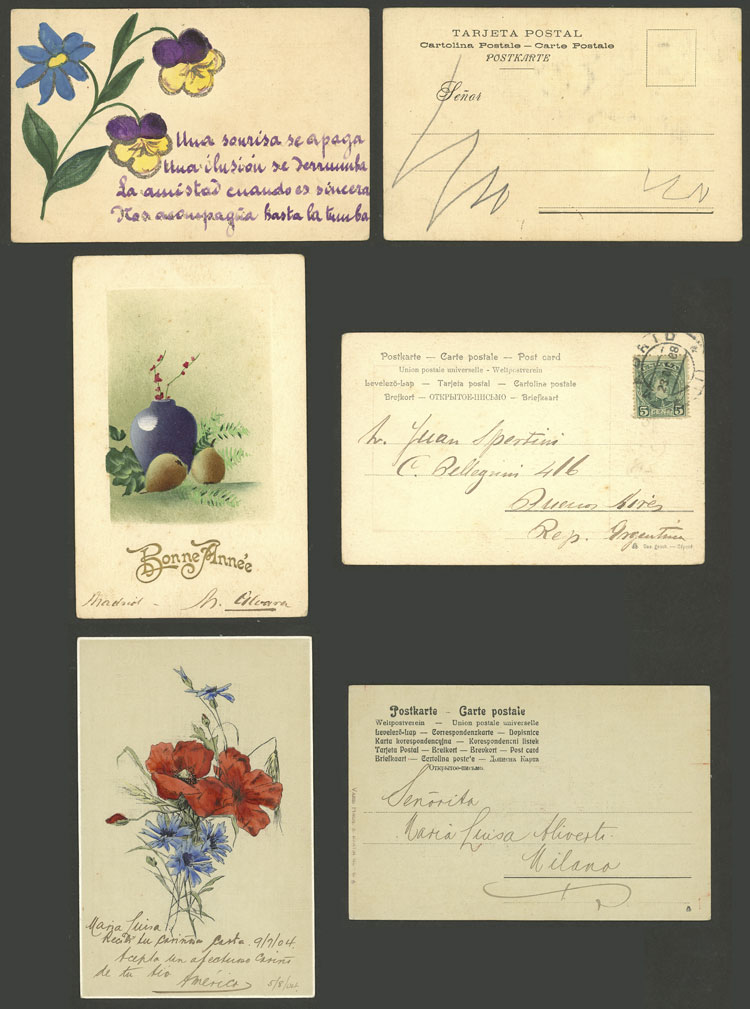 Una sonrisa se apaga
Una ilusión se derrumba
La amistad cuando es sincera
Nos acompaña hasta la tumba
TARJETA POSTAL
Cartolina Postale — Carte Postale
POSTKARTE
Señor
Bonne Année
Madrid - M. Alvara
Postkarte — Carte postale — Post card
Union postale universelle - Weltpostverein
Levelező-Lap — Tarjeta postal — Cartolina postale
Brefkort — ОТКРЫТОЕ-ПИСЬМО — Briefkaart
5 5
Juan Spertini
C. Pellegrini 416
Buenos Aires
Rep. Argentina
Maria Luisa
Recibí tu cariñosa carta 9/7/04
Acepta un afectuoso cariño
de tu tío
América
5/8/04
Postkarte - Carte postale
Weltpostverein — Union postale universelle
Levelező-Lap — Correspondenzkarte — Dopisnice
Karta korespondencyjna — Korespondencni listek
Tarjeta Postal — Breikort — Brevkort — Post card
Briefkaart — Cartolina postc'e — Дописна Карта
Открытое-письмо.
Señorita
Maria Luisa Aliverti
Milano